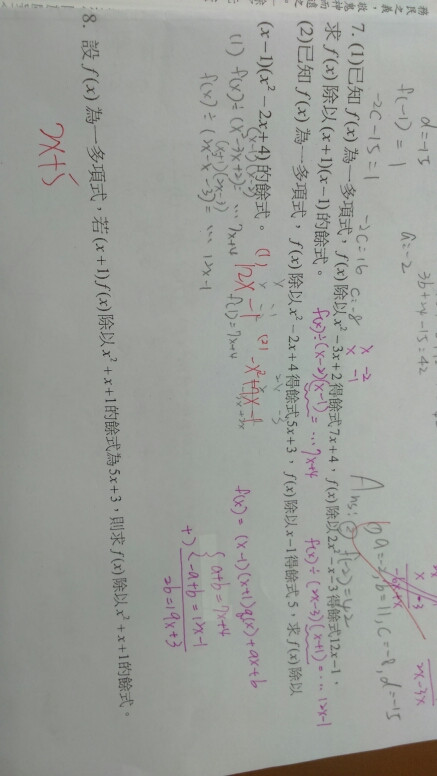 d=-15
f(-1)=1
-2C-15=1
-2C=16 C=-8
a=-2
3b+24-15=42
7. (1)已知 f(x) 為一多項式，f(x)除以 x²-3x+2 得餘式 7x+4，f(x)除以 2x²-x-3 得餘式 12x-1，
求 f(x)除以(x+1)(x-1)的餘式。
f(x)÷(x-2)(x-1)=…7x+4
f(x)÷(2x-3)(x+1)=…12x-1
Ans:
a=-2, b=11, C=-8, d=-15
f(-2)=42
(2)已知 f(x)為一多項式，f(x)除以 x²-2x+4 得餘式 5x+3，f(x)除以 x-1 得餘式 5，求 f(x)除以
(x-1)(x²-2x+4)的餘式。
(1) f(x)÷(x²-3x+2)=…7x+4
f(1)=7x+4
(x+1)(2x-3)
f(x)÷(2x²-x-3)=…12x-1
f(x)=(x-1)(x+1)q(x)+ax+b
{a+b=7x+4
+) {-a+b=12x-1
2b=19x+3
8. 設 f(x)為一多項式，若(x+1)f(x)除以 x²+x+1 的餘式為 5x+3，則求 f(x)除以 x²+x+1 的餘式。
2x+5